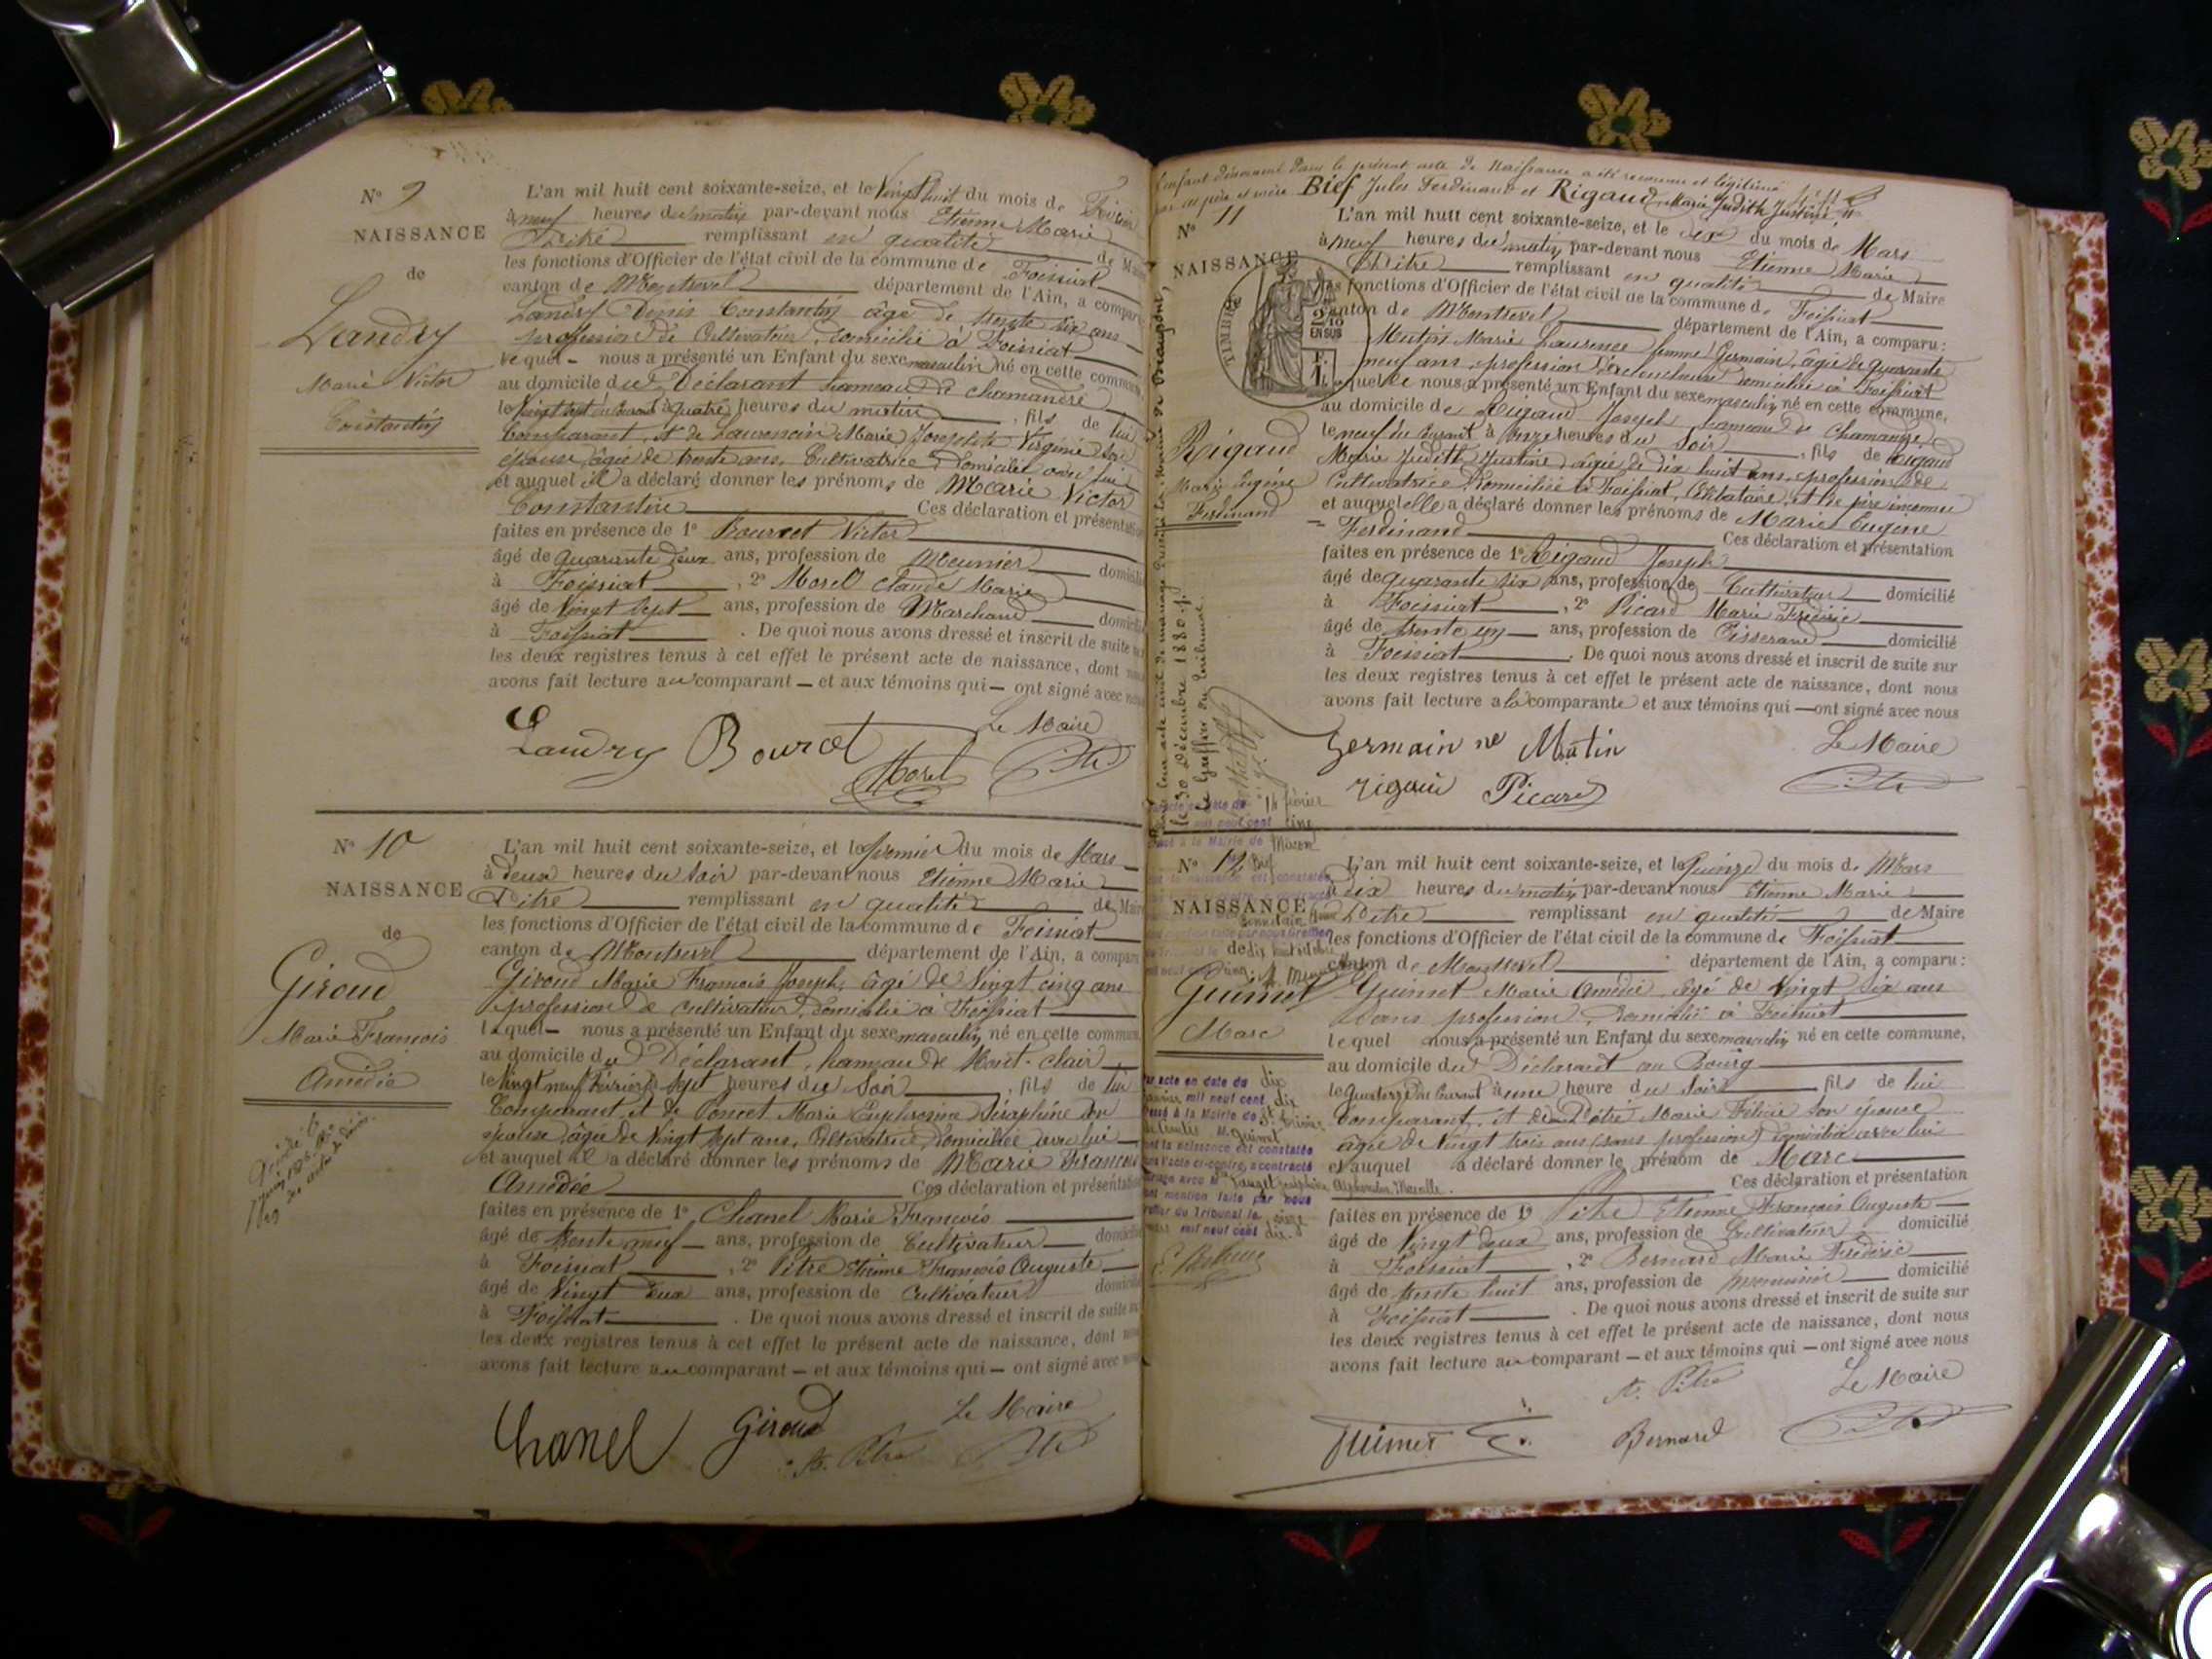 N° 9
NAISSANCE
de
Landry
Marie Victor
Constantin
L'an mil huit cent soixante-seize, et le Vingt huit du mois de Février
à neuf heures du matin par-devant nous Etienne Marie
Pitre remplissant en qualité de Maire
les fonctions d'Officier de l'état civil de la commune de Foissiat
canton de Montrevel département de l'Ain, a comparu
Landry Denis Constantin âgé de trente six ans
profession de Cultivateur, domicilié à Foissiat
lequel nous a présenté un Enfant du sexe masculin né en cette commune
au domicile du Déclarant hameau de chamandré
le Vingt sept du Courant à quatre heures du matin, fils de lui
Comparant, et de Laurencin Marie Josephte Virginie son
épouse, âgée de trente ans, Cultivatrice Domiciliée avec lui
et auquel il a déclaré donner les prénoms de Marie Victor
Constantin Ces déclaration et présentation
faites en présence de 1° Bourcet Victor
âgé de quarante deux ans, profession de Meunier domicilié
à Foissiat, 2° Morel Claude Marie
âgé de Vingt sept ans, profession de Marchand domicilié
à Foissiat. De quoi nous avons dressé et inscrit de suite sur
les deux registres tenus à cet effet le présent acte de naissance, dont nous
avons fait lecture au comparant — et aux témoins qui — ont signé avec nous
Le Maire
Landry Bourcet
Morel
N° 10
NAISSANCE
de
Giroud
Marie François
Amédée
L'an mil huit cent soixante-seize, et le premier du mois de Mars
à deux heures du soir par-devant nous Etienne Marie
Pitre remplissant en qualité de Maire
les fonctions d'Officier de l'état civil de la commune de Foissiat
canton de Montrevel département de l'Ain, a comparu
Giroud Marie François Joseph, âgé de Vingt cinq ans
profession de cultivateur, domicilié à Foissiat
lequel — nous a présenté un Enfant du sexe masculin né en cette commune
au domicile du Déclarant, hameau de Mont-clair
le Vingt neuf Février à sept heures du Soir, fils de lui
Comparant, et de Poncet Marie Euphrosine Séraphine son
épouse, âgée de Vingt sept ans, Cultivatrice, Domiciliée avec lui
et auquel il a déclaré donner les prénoms de Marie François
Amédée Ces déclaration et présentation
faites en présence de 1° Chanel Marie François
âgé de trente neuf ans, profession de Cultivateur domicilié
à Foissiat, 2° Pitre Etienne François Auguste
âgé de Vingt deux ans, profession de Cultivateur domicilié
à Foissiat. De quoi nous avons dressé et inscrit de suite sur
les deux registres tenus à cet effet le présent acte de naissance, dont nous
avons fait lecture au comparant — et aux témoins qui — ont signé avec nous
Le Maire
Chanel Giroud
A. Pitre
L'enfant dénommé dans le présent acte de Naissance a été reconnu et légitimé
par ses père et mère Bief Jules Ferdinand et Rigaud Marie Judith Justine
le 30 Décembre 1880
Le Greffier du tribunal
N° 11
NAISSANCE
TIMBRE
2/10
EN SUS
Rigaud
Marie Eugène
Ferdinand
L'an mil huit cent soixante-seize, et le dix du mois de Mars
à neuf heures du matin par-devant nous Etienne Marie
Pitre remplissant en qualité de Maire
les fonctions d'Officier de l'état civil de la commune de Foissiat
canton de Montrevel département de l'Ain, a comparu :
Mutin Marie Laurence femme Germain, âgée de quarante
neuf ans, profession d'accoucheuse domiciliée à Foissiat
laquelle nous a présenté un Enfant du sexe masculin né en cette commune,
au domicile de Rigaud Joseph hameau de Chamandré
le neuf du Courant à Onze heures du Soir, fils de Rigaud
Marie Judith Justine âgée de dix huit ans, profession de
Cultivatrice, Domiciliée à Foissiat, Célibataire, et de père inconnu
et auquel elle a déclaré donner les prénoms de Marie Eugène
Ferdinand Ces déclaration et présentation
faites en présence de 1° Rigaud Joseph
âgé de quarante six ans, profession de Cultivateur domicilié
à Foissiat, 2° Picard Marie Frédéric
âgé de trente un ans, profession de Tisserand domicilié
à Foissiat. De quoi nous avons dressé et inscrit de suite sur
les deux registres tenus à cet effet le présent acte de naissance, dont nous
avons fait lecture à la comparante et aux témoins qui — ont signé avec nous
Germain né Mutin Le Maire
rigaud Picard
N° 12
NAISSANCE
de
Guimet
Marc
L'an mil huit cent soixante-seize, et le Quinze du mois de Mars
à dix heures du matin par-devant nous Etienne Marie
Pitre remplissant en qualité de Maire
les fonctions d'Officier de l'état civil de la commune de Foissiat
canton de Montrevel département de l'Ain, a comparu :
Guimet Marie Amédée, âgé de Vingt six ans
Sans profession, domicilié à Foissiat
lequel nous a présenté un Enfant du sexe masculin né en cette commune,
au domicile du Déclarant au Bourg
le Quatorze du Courant à une heure du Soir fils de lui
Comparant, et de Pitre Marie Félicie son épouse
âgée de Vingt trois ans (sans profession) domiciliée avec lui
et auquel a déclaré donner le prénom de Marc
Ces déclaration et présentation
faites en présence de 1° Pitre Etienne François Auguste
âgé de Vingt deux ans, profession de Cultivateur domicilié
à Foissiat, 2° Bernard Marie Frédéric
âgé de trente huit ans, profession de menuisier domicilié
à Foissiat. De quoi nous avons dressé et inscrit de suite sur
les deux registres tenus à cet effet le présent acte de naissance, dont nous
avons fait lecture au comparant — et aux témoins qui — ont signé avec nous
A. Pitre Le Maire
Guimet Bernard